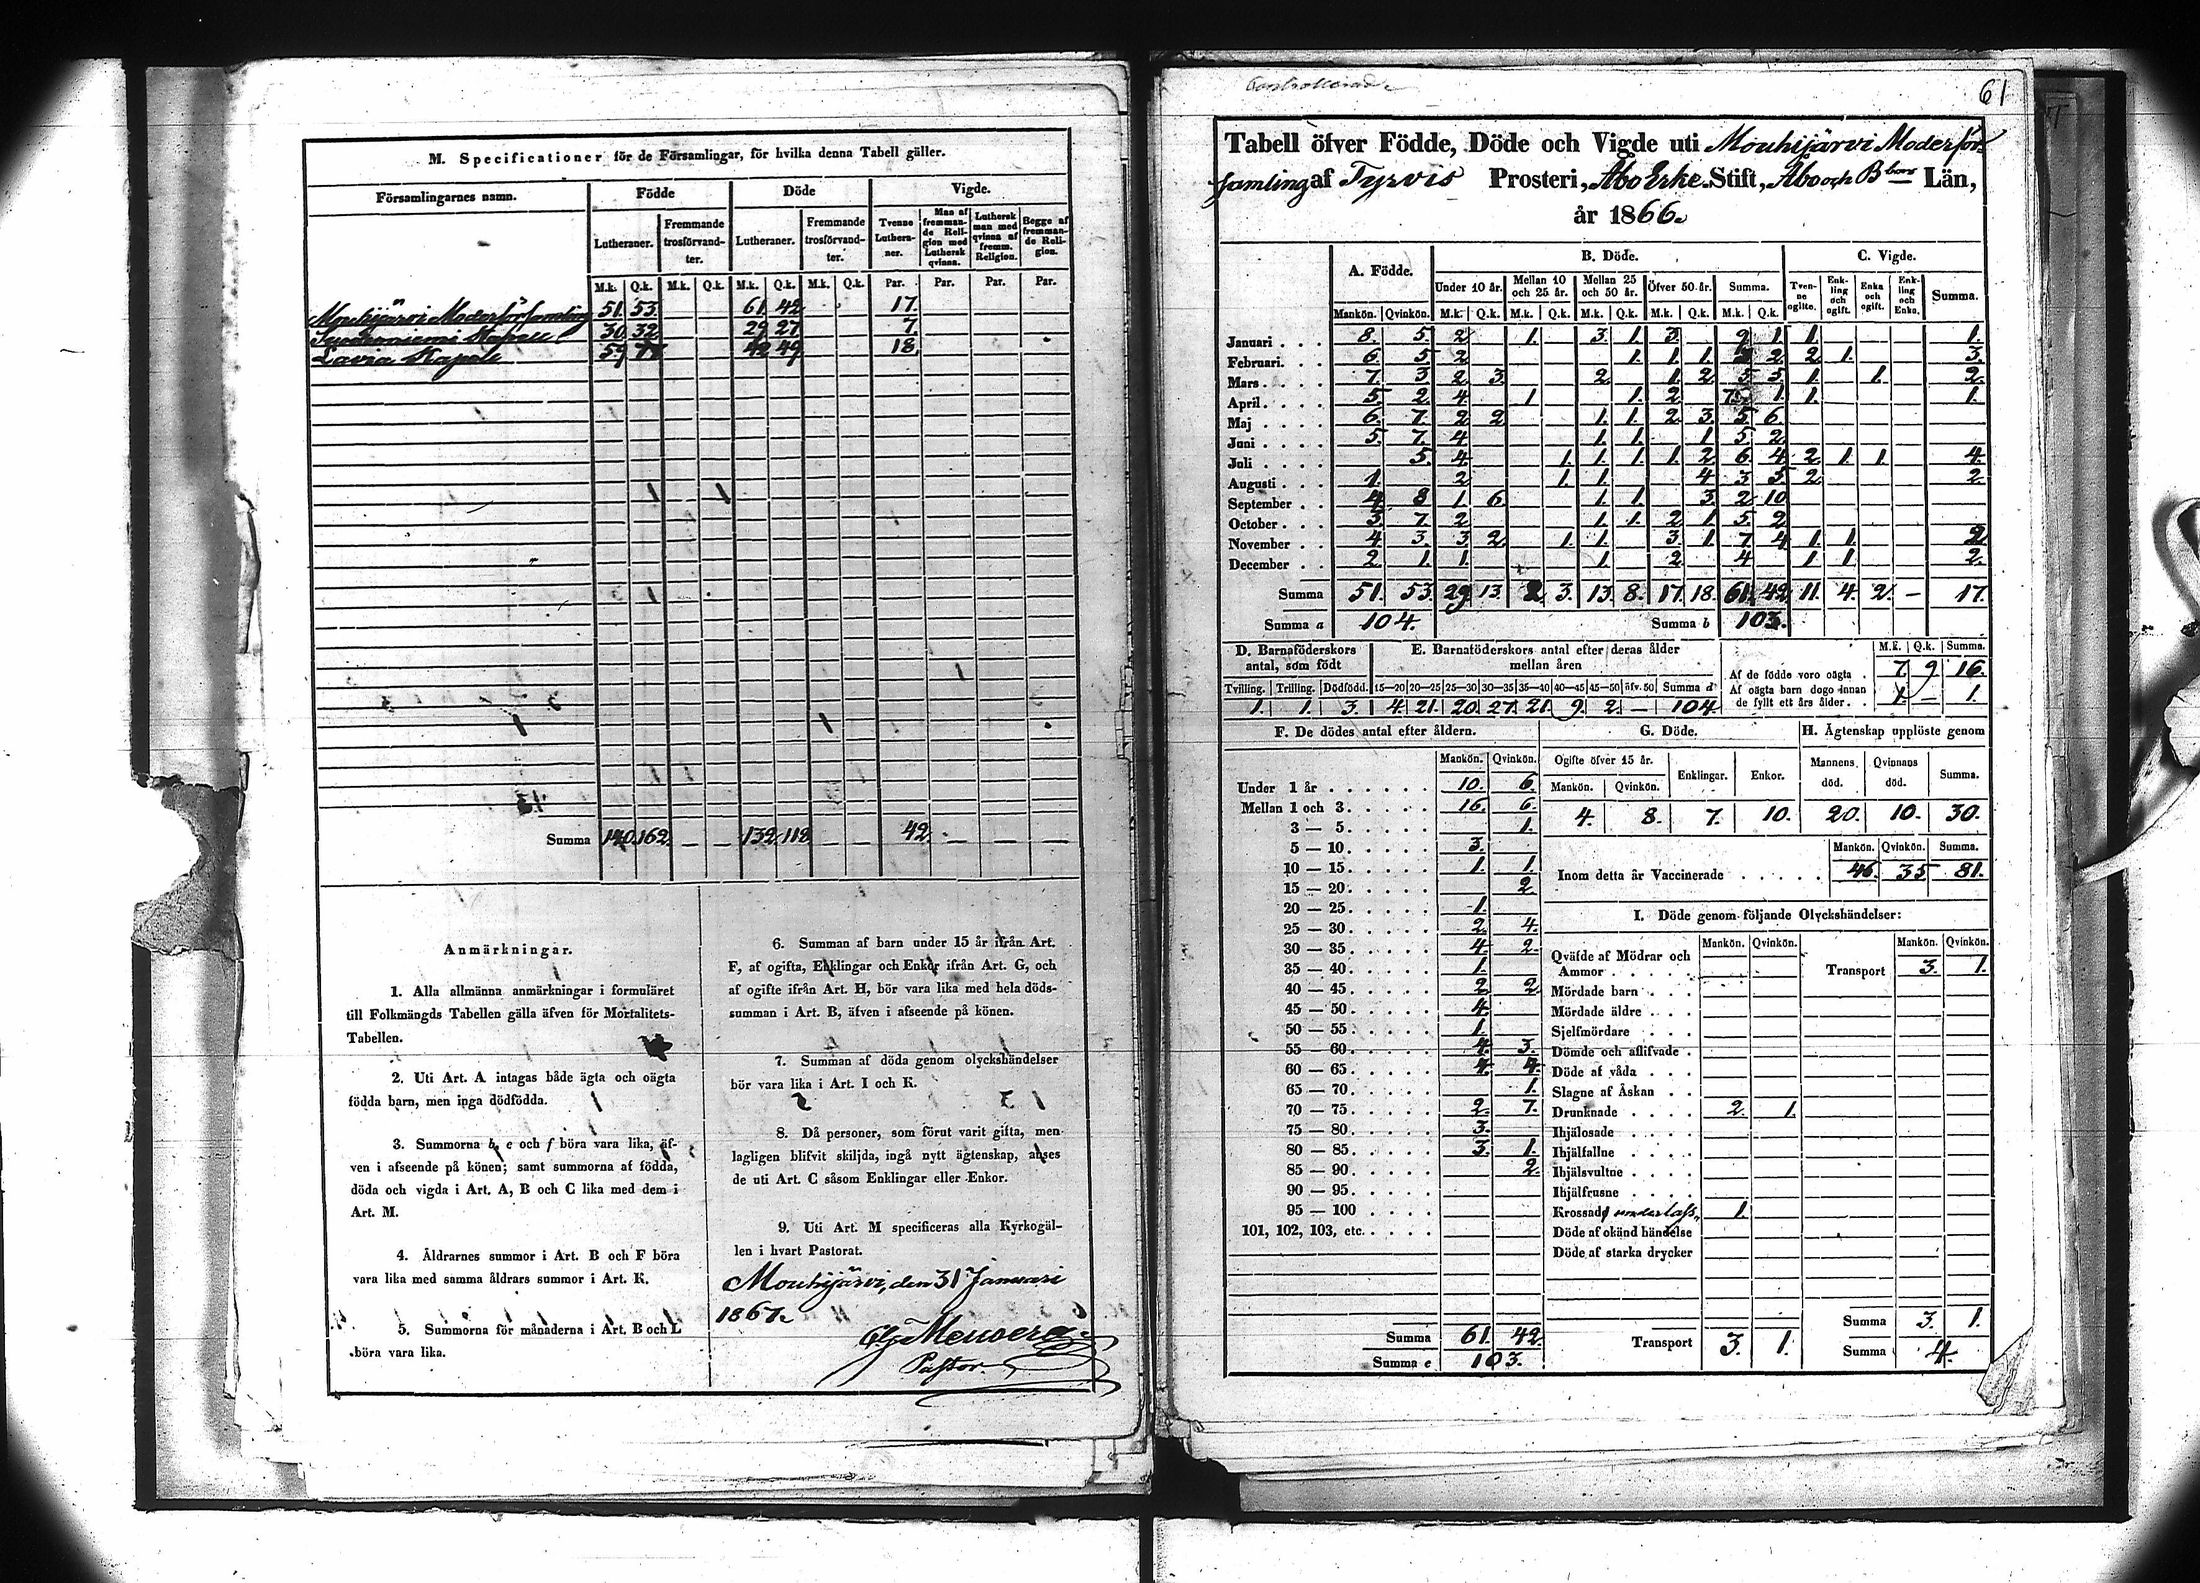 M. Specificationer för de Församlingar, för hvilka denna Tabell gäller.
Församlingarnes namn. Födde Döde Vigde.
Lutheraner. Fremmande trosförvandter. Lutheraner. Fremmande trosförvandter. Tvenne Lutheraner. Man af fremmande Religion med Luthersk qvinna. Luthersk man med qvinna af fremm. Religion. Begge af fremmande Religion.
M.k. Q.k. M.k. Q.k. M.k. Q.k. M.k. Q.k. Par. Par. Par. Par.
Mouhijärvi Moderförsamling 51. 53. 61. 42 17.
Kapell 30 32 29 27 7
Lavia Kapell 59 77 42 49 18.
Summa 140. 162. — — 132. 118 — — 42. — — —
Anmärkningar.
1. Alla allmänna anmärkningar i formuläret
till Folkmängds Tabellen gälla äfven för Mortalitets-
Tabellen.
2. Uti Art. A intagas både ägta och oägta
födda barn, men inga dödfödda.
3. Summorna b, e och f böra vara lika, äf-
ven i afseende på könen; samt summorna af födda,
döda och vigda i Art. A, B och C lika med dem i
Art. M.
4. Åldrarnes summor i Art. B och F böra
vara lika med samma åldrars summor i Art. K.
5. Summorna för månaderna i Art. B och L
böra vara lika.
6. Summan af barn under 15 år ifrån Art.
F, af ogifta, Enklingar och Enkor ifrån Art. G, och
af ogifte ifrån Art. H, bör vara lika med hela döds-
summan i Art. B, äfven i afseende på könen.
7. Summan af döda genom olyckshändelser
bör vara lika i Art. I och K.
8. Då personer, som förut varit gifta, men
lagligen blifvit skiljda, ingå nytt ägtenskap, anses
de uti Art. C såsom Enklingar eller Enkor.
9. Uti Art. M specificeras alla Kyrkogäl-
len i hvart Pastorat.
Mouhijärvi, den 31 Januari
1867.
Pastor.
Controllerad.
61
Tabell öfver Födde, Döde och Vigde uti Mouhijärvi Moderför-
samling af Tyrvis Prosteri, Åbo Erke Stift, Åbo och B:borgs Län,
år 1866.
A. Födde. B. Döde. C. Vigde.
Under 10 år. Mellan 10 och 25 år. Mellan 25 och 50 år. Öfver 50 år. Summa. Tvenne ogifte. Enkling och ogift. Enka och ogift. Enkling och Enka. Summa.
Mankön. Qvinkön. M.k. Q.k. M.k. Q.k. M.k. Q.k. M.k. Q.k. M.k. Q.k.
Januari . . . 8. 5. 2 1. 3. 1. 3. 9. 1. 1. 1.
Februari. . . 6. 5. 2 1. 1. 1. 2. 2. 1. 3.
Mars . . . . 7. 3. 2. 3. 2. 1. 2. 5. 5. 1. 1. 2.
April. . . . 5. 2. 4. 1 1. 2 7. 1. 1. 1.
Maj . . . . 6. 7. 2 2 1. 1. 2. 3. 5. 6.
Juni . . . . 5. 7. 4 1. 1. 1. 5. 2.
Juli . . . . 5. 4. 1. 1. 1. 1. 2 6. 4. 2. 1. 1. 4.
Augusti . . . 1. 2 1. 1. 4 3 5 2 2.
September . . 4 8 1. 6. 1. 1. 3. 2 10
October . . . 3. 7. 2 1. 1. 2. 1. 5. 2
November . . 4. 3. 3. 2. 1. 1. 3. 1. 7. 4. 1. 1. 2.
December . . 2. 1. 1. 1. 2. 4. 1. 1. 2.
Summa 51. 53. 29. 13. 2. 3. 13. 8. 17. 18. 61. 42. 11. 4. 2. — 17.
Summa a 104. Summa b 103.
D. Barnaföderskors antal, som födt
E. Barnaföderskors antal efter deras ålder mellan åren
M.k. Q.k. Summa.
Tvilling. Trilling. Dödfödd. 15—20 20—25 25—30 30—35 35—40 40—45 45—50 öfv. 50 Summa d
1. 1. 3. 4. 21. 20. 27. 21. 9. 2. — 104.
Af de födde voro oägta . 7. 9 16.
Af oägta barn dogo innan de fyllt ett års ålder . . 1. — 1.
F. De dödes antal efter åldern.
Mankön. Qvinkön.
Under 1 år . . . . . . 10. 6.
Mellan 1 och 3. . . . . 16. 6.
3 — 5. . . . . 1.
5 — 10. . . . . 3.
10 — 15. . . . . 1. 1.
15 — 20. . . . . 2
20 — 25. . . . . 1.
25 — 30. . . . . 2. 4.
30 — 35. . . . . 4. 2.
35 — 40. . . . . 1.
40 — 45. . . . . 2. 2.
45 — 50. . . . . 4.
50 — 55. . . . . 1.
55 — 60. . . . . 4. 3.
60 — 65. . . . . 4. 4.
65 — 70. . . . . 1.
70 — 75. . . . . 2. 7.
75 — 80. . . . . 3.
80 — 85. . . . . 3. 1.
85 — 90. . . . . 2.
90 — 95. . . . .
95 — 100 . . . . .
101, 102, 103, etc. . . . .
Summa 61. 42.
Summa e 103.
G. Döde.
Ogifte öfver 15 år. Enklingar. Enkor.
Mankön. Qvinkön.
4. 8. 7. 10.
H. Ägtenskap upplöste genom
Mannens död. Qvinnans död. Summa.
20. 10. 30.
Mankön. Qvinkön. Summa.
Inom detta år Vaccinerade . . . . . 46. 35 81.
I. Döde genom följande Olyckshändelser:
Mankön. Qvinkön. Mankön. Qvinkön.
Qväfde af Mödrar och Ammor . . . . .
Transport 3. 1.
Mördade barn . . .
Mördade äldre . . .
Sjelfmördare . . .
Dömde och aflifvade .
Döde af våda . . .
Slagne af Åskan . .
Drunknade . . . . 2. 1.
Ihjälosade . . . .
Ihjälfallne . . . .
Ihjälsvultne . . . .
Ihjälfrusne . . . .
Krossad under lass 1.
Döde af okänd händelse
Döde af starka drycker
Transport 3. 1.
Summa 3. 1.
Summa 4.